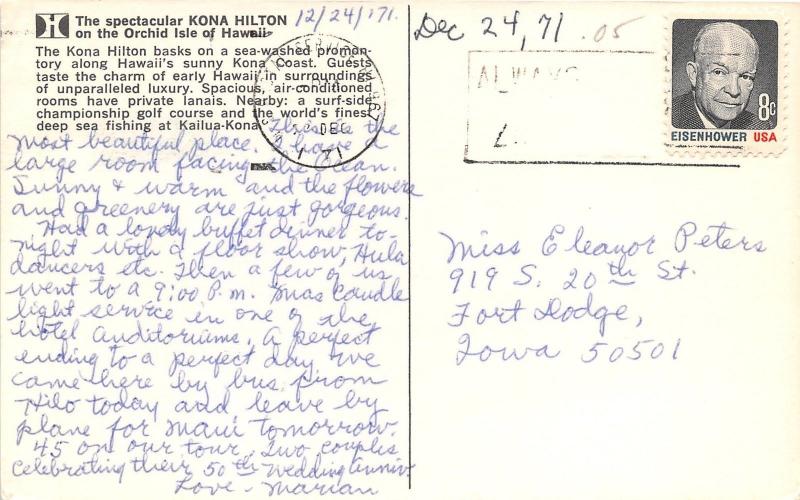 The spectacular KONA HILTON
on the Orchid Isle of Hawaii
The Kona Hilton basks on a sea-washed promon-
tory along Hawaii's sunny Kona Coast. Guests
taste the charm of early Hawaii in surroundings
of unparalleled luxury. Spacious, air-conditioned
rooms have private lanais. Nearby: a surf-side
championship golf course and the world's finest
deep sea fishing at Kailua-Kona.
12/24/71.
This is the
most beautiful place. I have a
large room facing the ocean.
Sunny & warm and the flowers
and greenery are just gorgeous.
Had a lovely buffet dinner to-
night with a floor show, Hula
dancers etc. Then a few of us
went to a 9:00 P.m. Xmas Candle
light service in one of the
hotel auditoriums. A perfect
ending to a perfect day. We
came here by bus from
Hilo today and leave by
plane for Maui tomorrow.
45 on our tour. Two couples
celebrating their 50th Wedding Anniv.
Love - Marian
Dec 24, 71 .05
DEC
ALWAYS
8c
EISENHOWER USA
Miss Eleanor Peters
919 S. 20th St.
Fort Dodge,
Iowa 50501